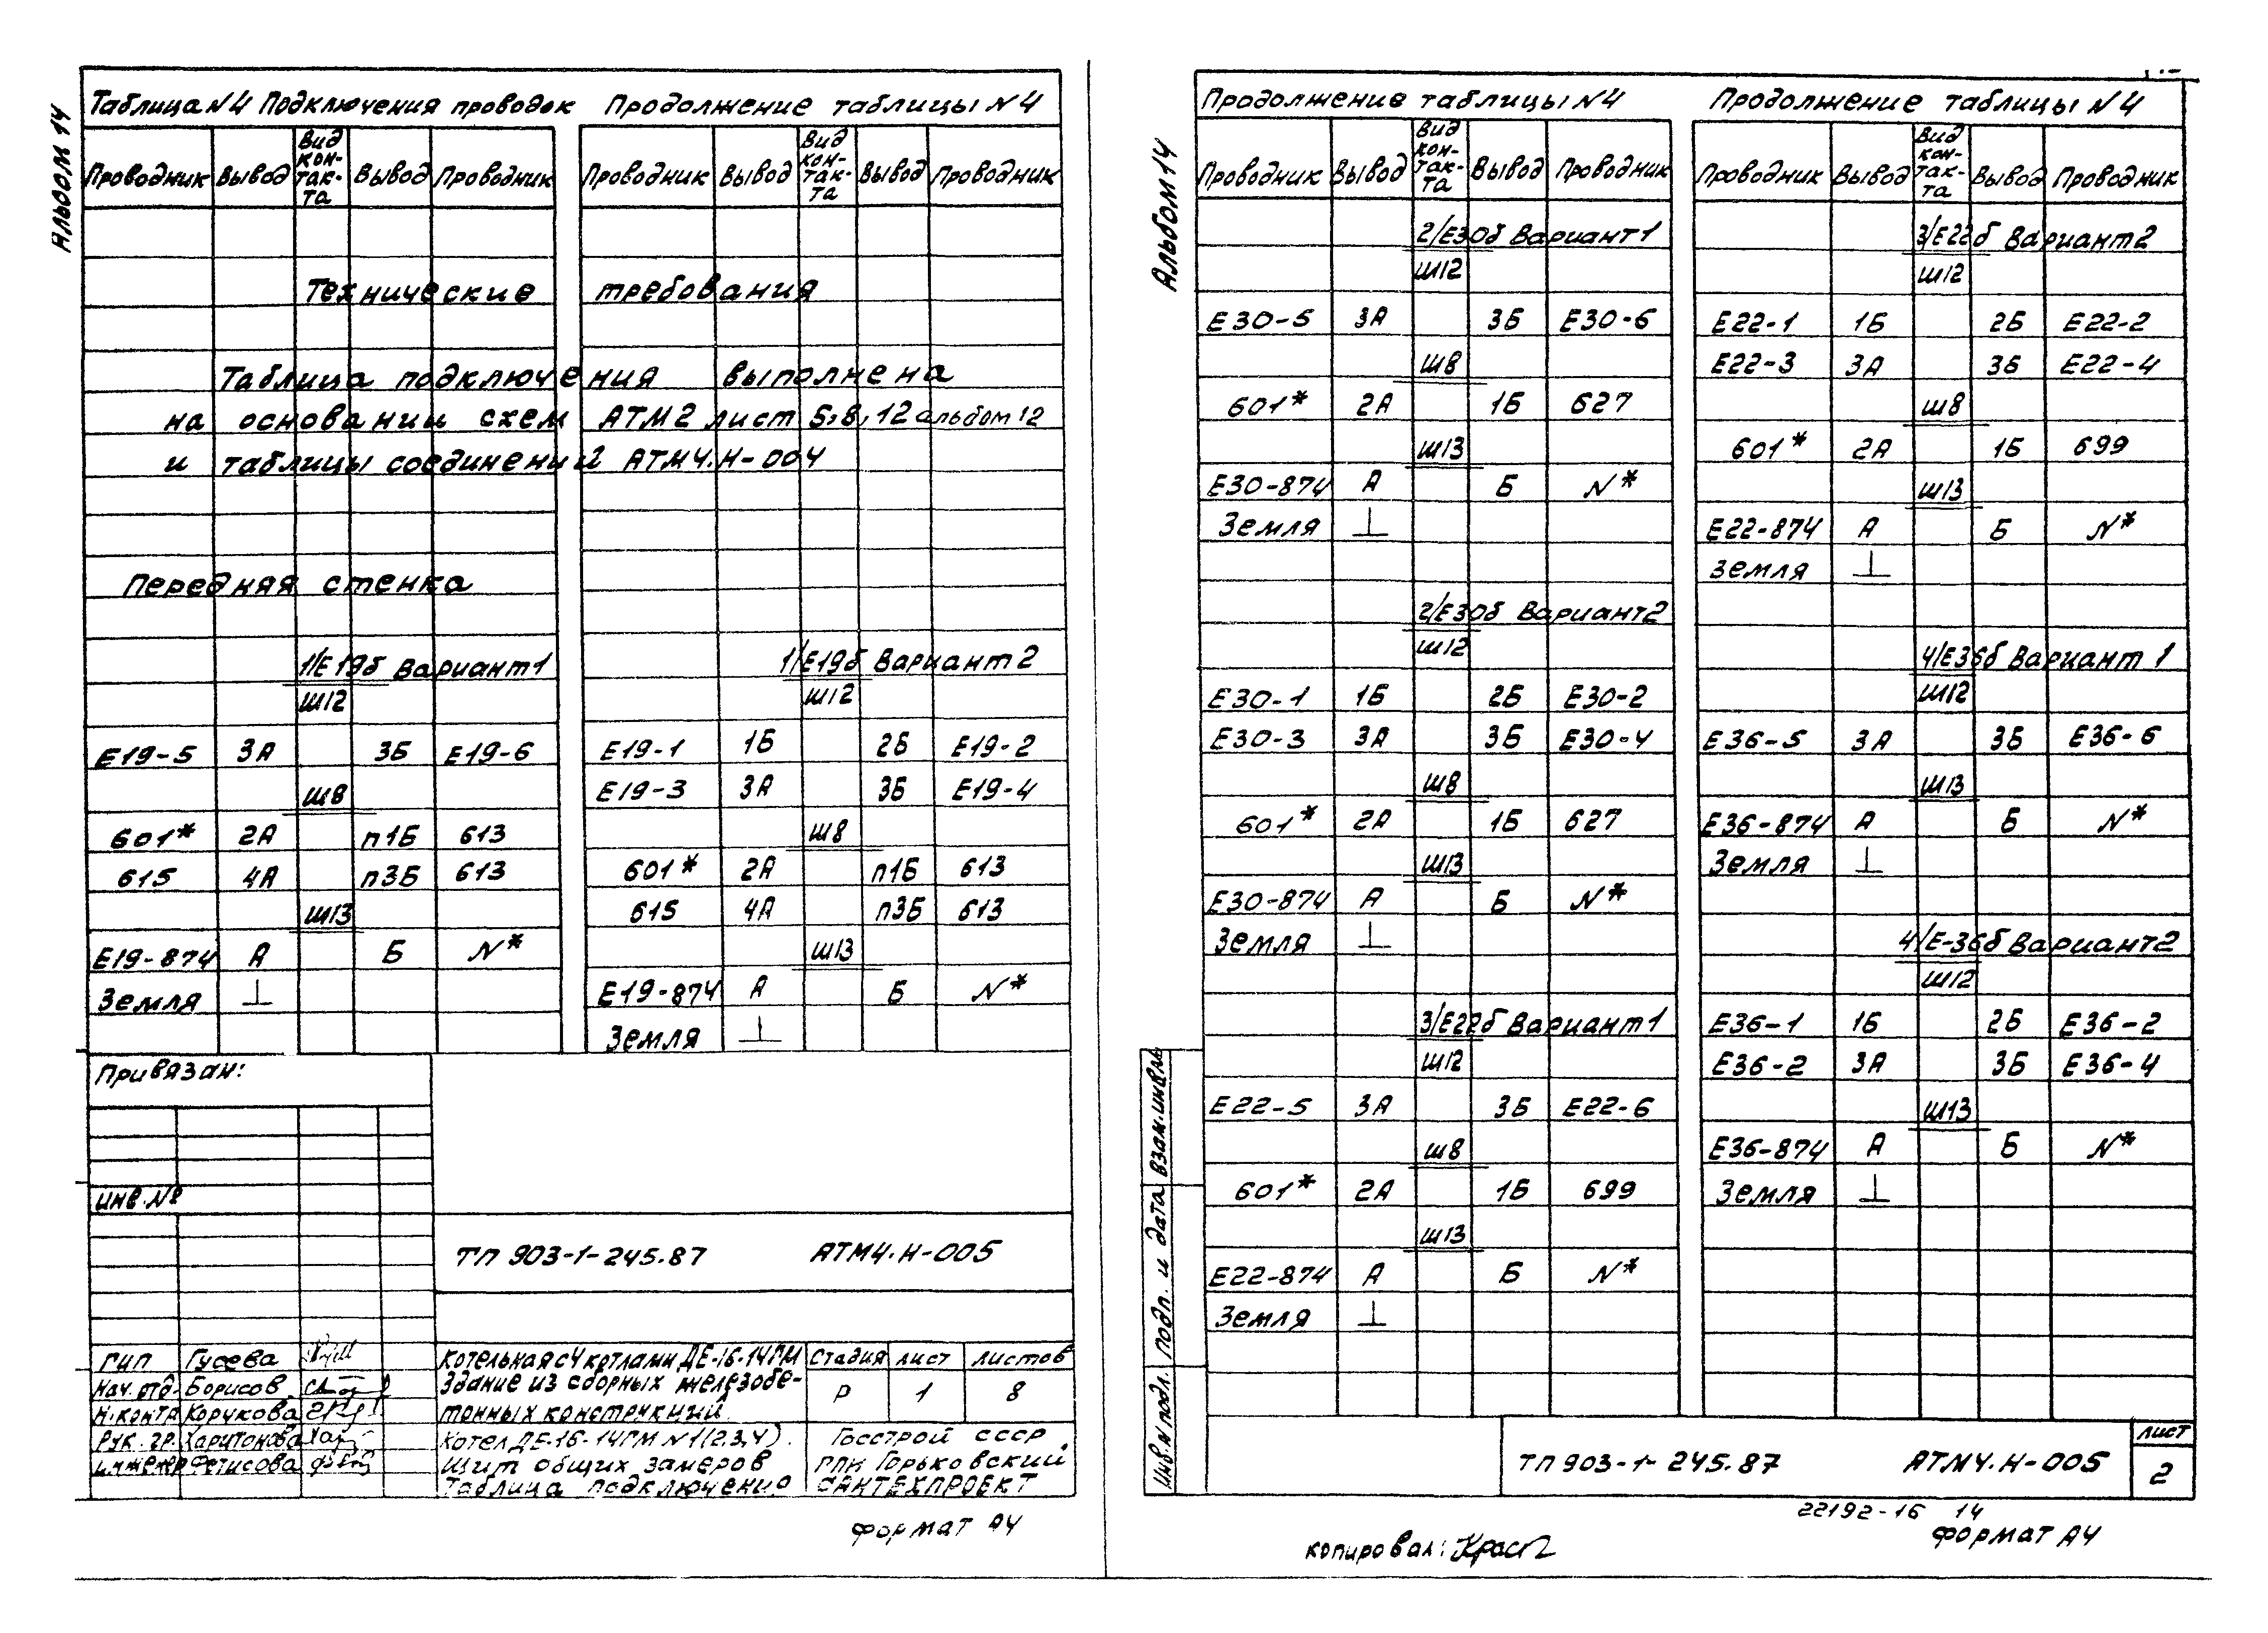 Альбом 14
Таблица N4 Подключения проводок Продолжение таблицы N4
Проводник Вывод Вид контакта Вывод Проводник Проводник Вывод Вид контакта Вывод Проводник
Технические требования
Таблица подключения выполнена
на основании схем АТМ2 лист 5,8,12 альбом 12
и таблицы соединений АТМ4.Н-004
Передняя стенка
1/Е19б Вариант1
Ш12
Е19-5 3А 3Б Е19-6
Ш8
601* 2А п1Б 613
615 4А п3Б 613
Ш13
Е19-874 А Б N*
Земля ⊥
1/Е19б Вариант2
Ш12
Е19-1 1Б 2Б Е19-2
Е19-3 3А 3Б Е19-4
Ш8
601* 2А п1Б 613
615 4А п3Б 613
Ш13
Е19-874 А Б N*
Земля ⊥
Привязан:
Инв.№
ТП 903-1-245.87 АТМ4.Н-005
ГИП Гусева
Нач.отд. Борисов
Н.контр Корчкова
Рук. гр. Харитонова
инженер Фетисова
Котельная с 4 котлами ДЕ-16-14ГМ
Здание из сборных железобе-
тонных конструкций.
Стадия лист листов
Р 1 8
Котел ДЕ-16-14ГМ N1(2,3,4).
Щит общих замеров
Таблица подключения
Госстрой СССР
ГПИ Горьковский
САНТЕХПРОЕКТ
Формат А4
Альбом 14
Продолжение таблицы N4 Продолжение таблицы N4
Проводник Вывод Вид контакта Вывод Проводник Проводник Вывод Вид контакта Вывод Проводник
2/Е30б Вариант1
Ш12
Е30-5 3А 3Б Е30-6
Ш8
601* 2А 1Б 627
Ш13
Е30-874 А Б N*
Земля ⊥
2/Е30б Вариант2
Ш12
Е30-1 1Б 2Б Е30-2
Е30-3 3А 3Б Е30-4
Ш8
601* 2А 1Б 627
Ш13
Е30-874 А Б N*
Земля ⊥
3/Е22б Вариант1
Ш12
Е22-5 3А 3Б Е22-6
Ш8
601* 2А 1Б 699
Ш13
Е22-874 А Б N*
Земля ⊥
3/Е22б Вариант2
Ш12
Е22-1 1Б 2Б Е22-2
Е22-3 3А 3Б Е22-4
Ш8
601* 2А 1Б 699
Ш13
Е22-874 А Б N*
Земля ⊥
4/Е36б Вариант 1
Ш12
Е36-5 3А 3Б Е36-6
Ш13
Е36-874 А Б N*
Земля ⊥
4/Е-36б Вариант2
Ш12
Е36-1 1Б 2Б Е36-2
Е36-2 3А 3Б Е36-4
Ш13
Е36-874 А Б N*
Земля ⊥
Инв.N подл. Подп. и дата Взам.инв.№
ТП 903-1-245.87 АТМ4.Н-005
лист
2
22192-16 14
копировал:
Формат А4